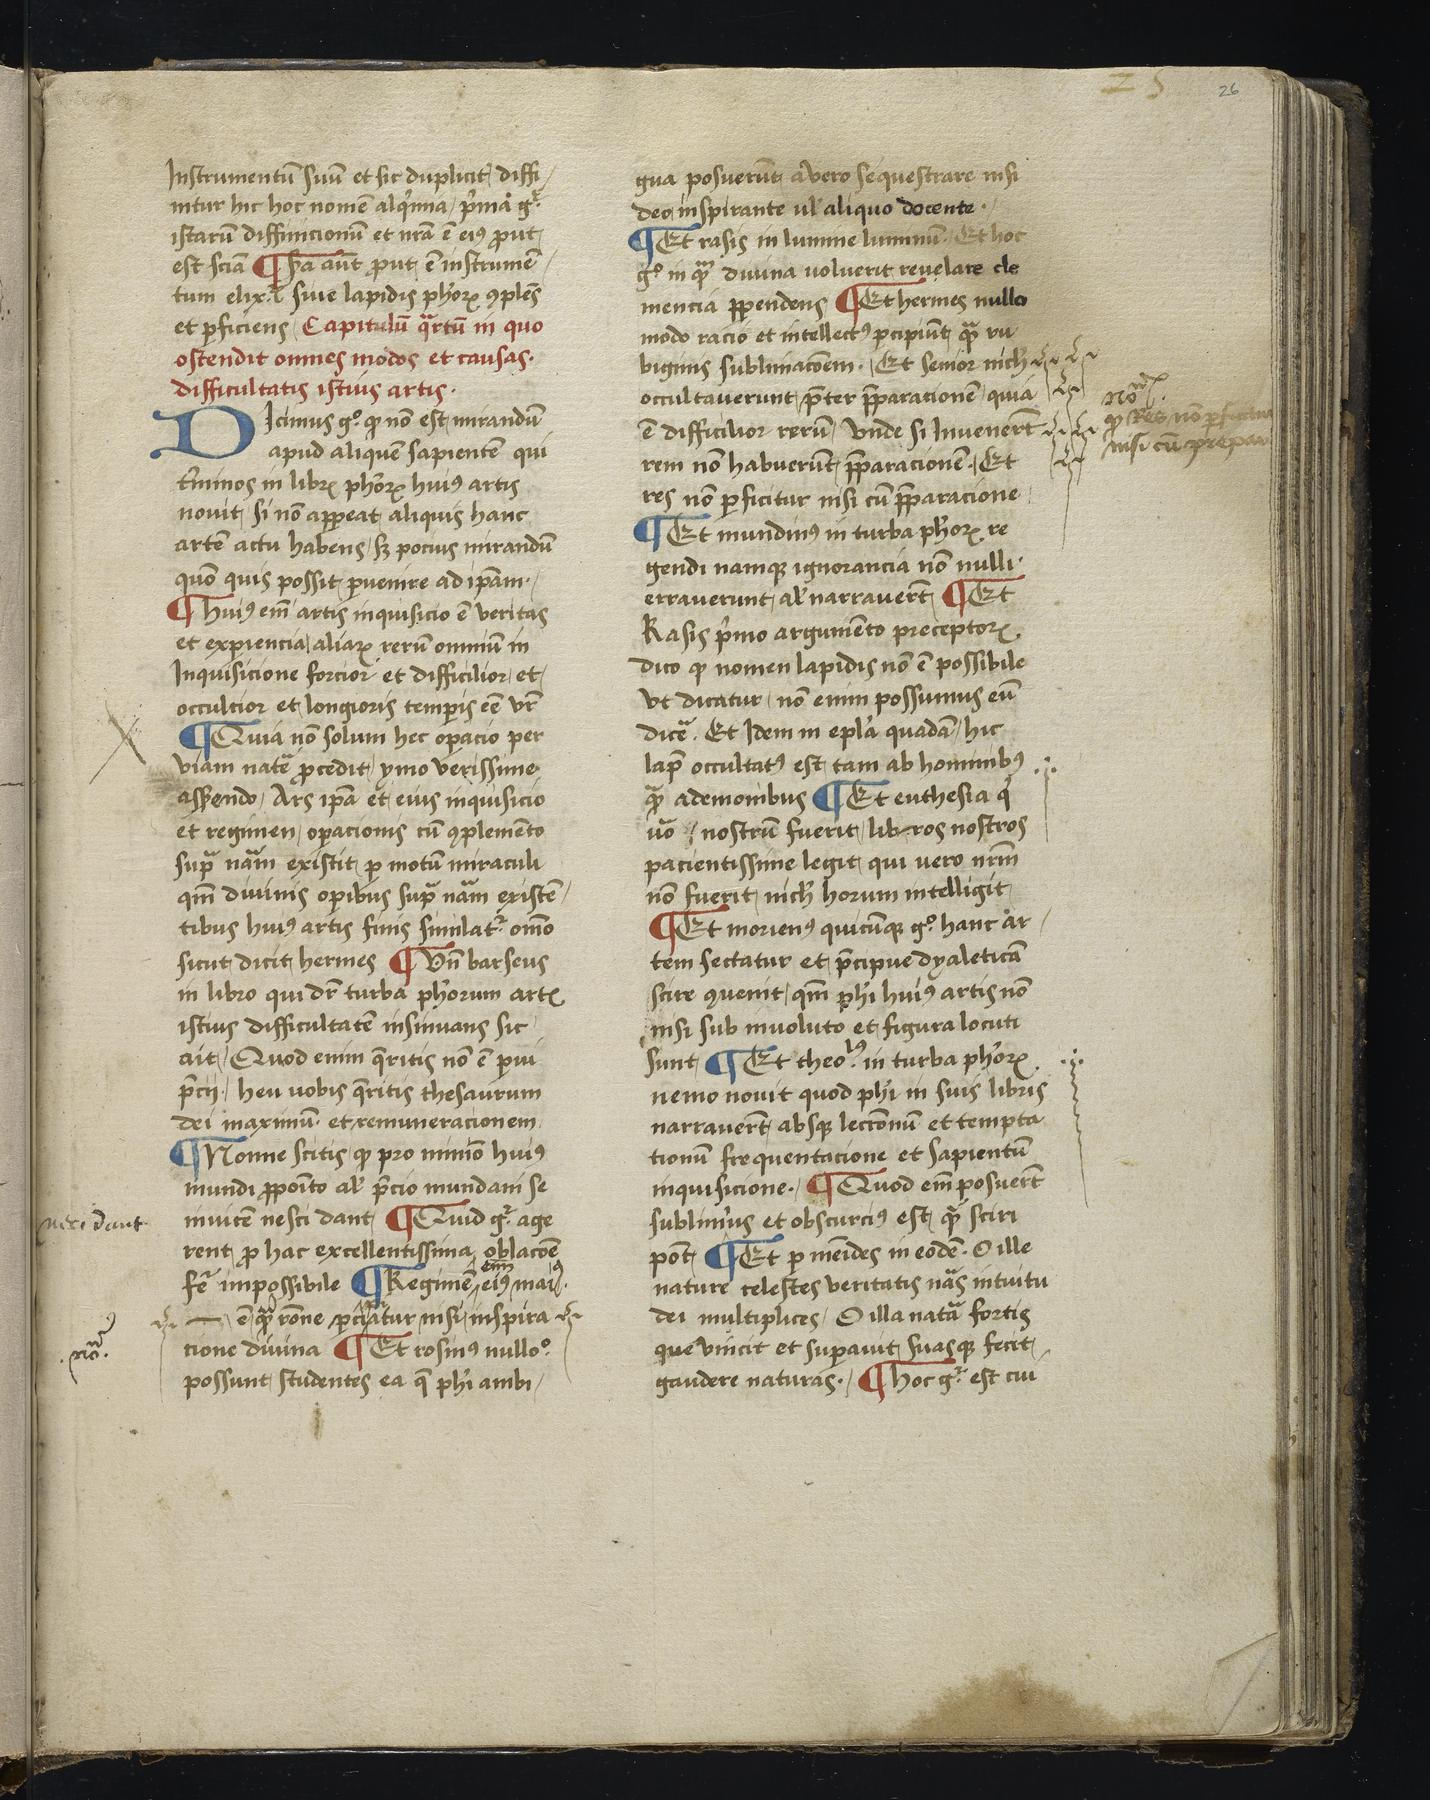 25 26
Instrumentū suū et sic duplicit diffi/
nitur hic hoc nomē alq'mia / p'ma gͬ
istarū diffinicionū et nrā ē eiꝰ ꝓut
est sciā ¶ Sʒa aūt ꝓut ē instrumē
tum elixͬ siue lapidis ph'oꝝ ꝯplēs
et ꝑficiens Capitulū qͣrtū in quo
ostendit omnes modos et causas.
difficultatis istius artis.
DIcimus gͦ ꝙ nō est mirandū
apud aliquē sapientē qui
t'minos in libꝝ ph'oꝝ huiꝰ artis
nouit si nō appeat aliquis hanc
artē actu habens / sʒ pocius mirandū
quō quis possit ꝑuenire ad ipām. /
¶ huiꝰ em̄ artis inquisicio ē veritas
et exꝑiencia / aliaꝝ rerū omniū in
Inquisicione forcior et difficilior / et
occultior et longioris temꝑis eē vr̄
¶ Quia nō solum hec oꝑacio per
viam natͤ ꝓcedit / ymo verissime
assendo / Ars ipā et eius inquisicio
et regimen / oꝑacionis cū ꝯplemēto
supͣ nām existit / ꝑ motū miraculi
qm̄ diuinis oꝑibus supͣ nām existē /
tibus huiꝰ artis finis similatͬ omō
sicut dicit hermes ¶ Vn̄ barseus
in libro qui dr̄ turba ph'orum artꝭ
istius difficultatē insinuans sic
ait / Quod enim q̄ritis nō ē ꝑui
p̄cij / heu uobis q̄ritis thesaurum
dei maximū et remuneracionem
¶ Nonne scitis ꝙ pro minīo huiꝰ
mundi ꝓpoīto al' p̄cio mundani se
inuicē nesci dant ¶ Quid gͬ age
rent ꝓ hac excellentissima oblacōe
fēͬ impossibile ¶ Regimē em̄ eiꝰ maiꝰ.
ē qͣ rōne ꝑcipiatur nisi / inspira
cione diuina ¶ Et rosinꝰ nulloͦ
possunt studentes ea q̄ ph'i ambi /
gua posuerūt a vero sequestrare nisi
deo inspirante ul' aliquo docente. /
¶ Et rasis in lumine luminū. Et hoc
gͦ in qͣ diuina voluerit reuelare cle
mencia ꝑpendens ¶ Et hermes nullo
modo racio et intellectꝰ ꝑcipiūt qͣ ru
biginis sublimacōem. Et senior nich'
occultauerunt p̄ter p̄paracionē / quia
ē difficilior rerū / Unde si Inuenerūt
rem nō habuerūt p̄paracionē. Et
res nō ꝑficitur nisi cū p̄paracione
¶ Et mundinꝰ in turba ph'oꝝ re
gendi namqʒ ignorancia nō nulli.
errauerunt / al' narrauerūt ¶ Et
Rasis p'mo argumēto preceptoꝝ
dico ꝙ nomen lapidis nō ē possibile
vt dicatur / nō enim possumus eū
dicēͬ. Et Idem in epl'a quadā / hic
lapͥ occultatꝰ est tam ab hominibꝰ
qͣ a demonibus ¶ Et euthesia qͥ
uō nostrū fuerit / libros nostros
pacientissime legit / qui vero nrm̄
nō fuerit / nich' horum intelligit
¶ Et morienꝰ quicūqʒ gͦ hanc ar /
tem sectatur et p̄cipue dyaleticā
scire ꝯuenit / qm̄ ph'i huiꝰ artis nō
nisi sub inuoluto et figura locuti
sunt ¶ Et theoˡᵘˢ in turba ph'oꝝ
nemo nouit quod ph'i in suis libris
narrauerūt absqʒ lectōnū et tempta
tionū frequentacione et sapientū
inquisicione. / ¶ Quod em̄ posuerūt
sublimiꝰ et obscurciꝰ est qͣ sciri
pōt ¶ Et ꝑ mēides in eodē. O ille
nature celestes veritatis nās intuitu
dei multiplices / O illa natͣ fortis
que vincit et suꝑauit suasqʒ fecit /
gaudere naturas. / ¶ Hoc gͬ est cui
ꝙ Res nō ꝑficitur
nisi cū prepar
nesci dant